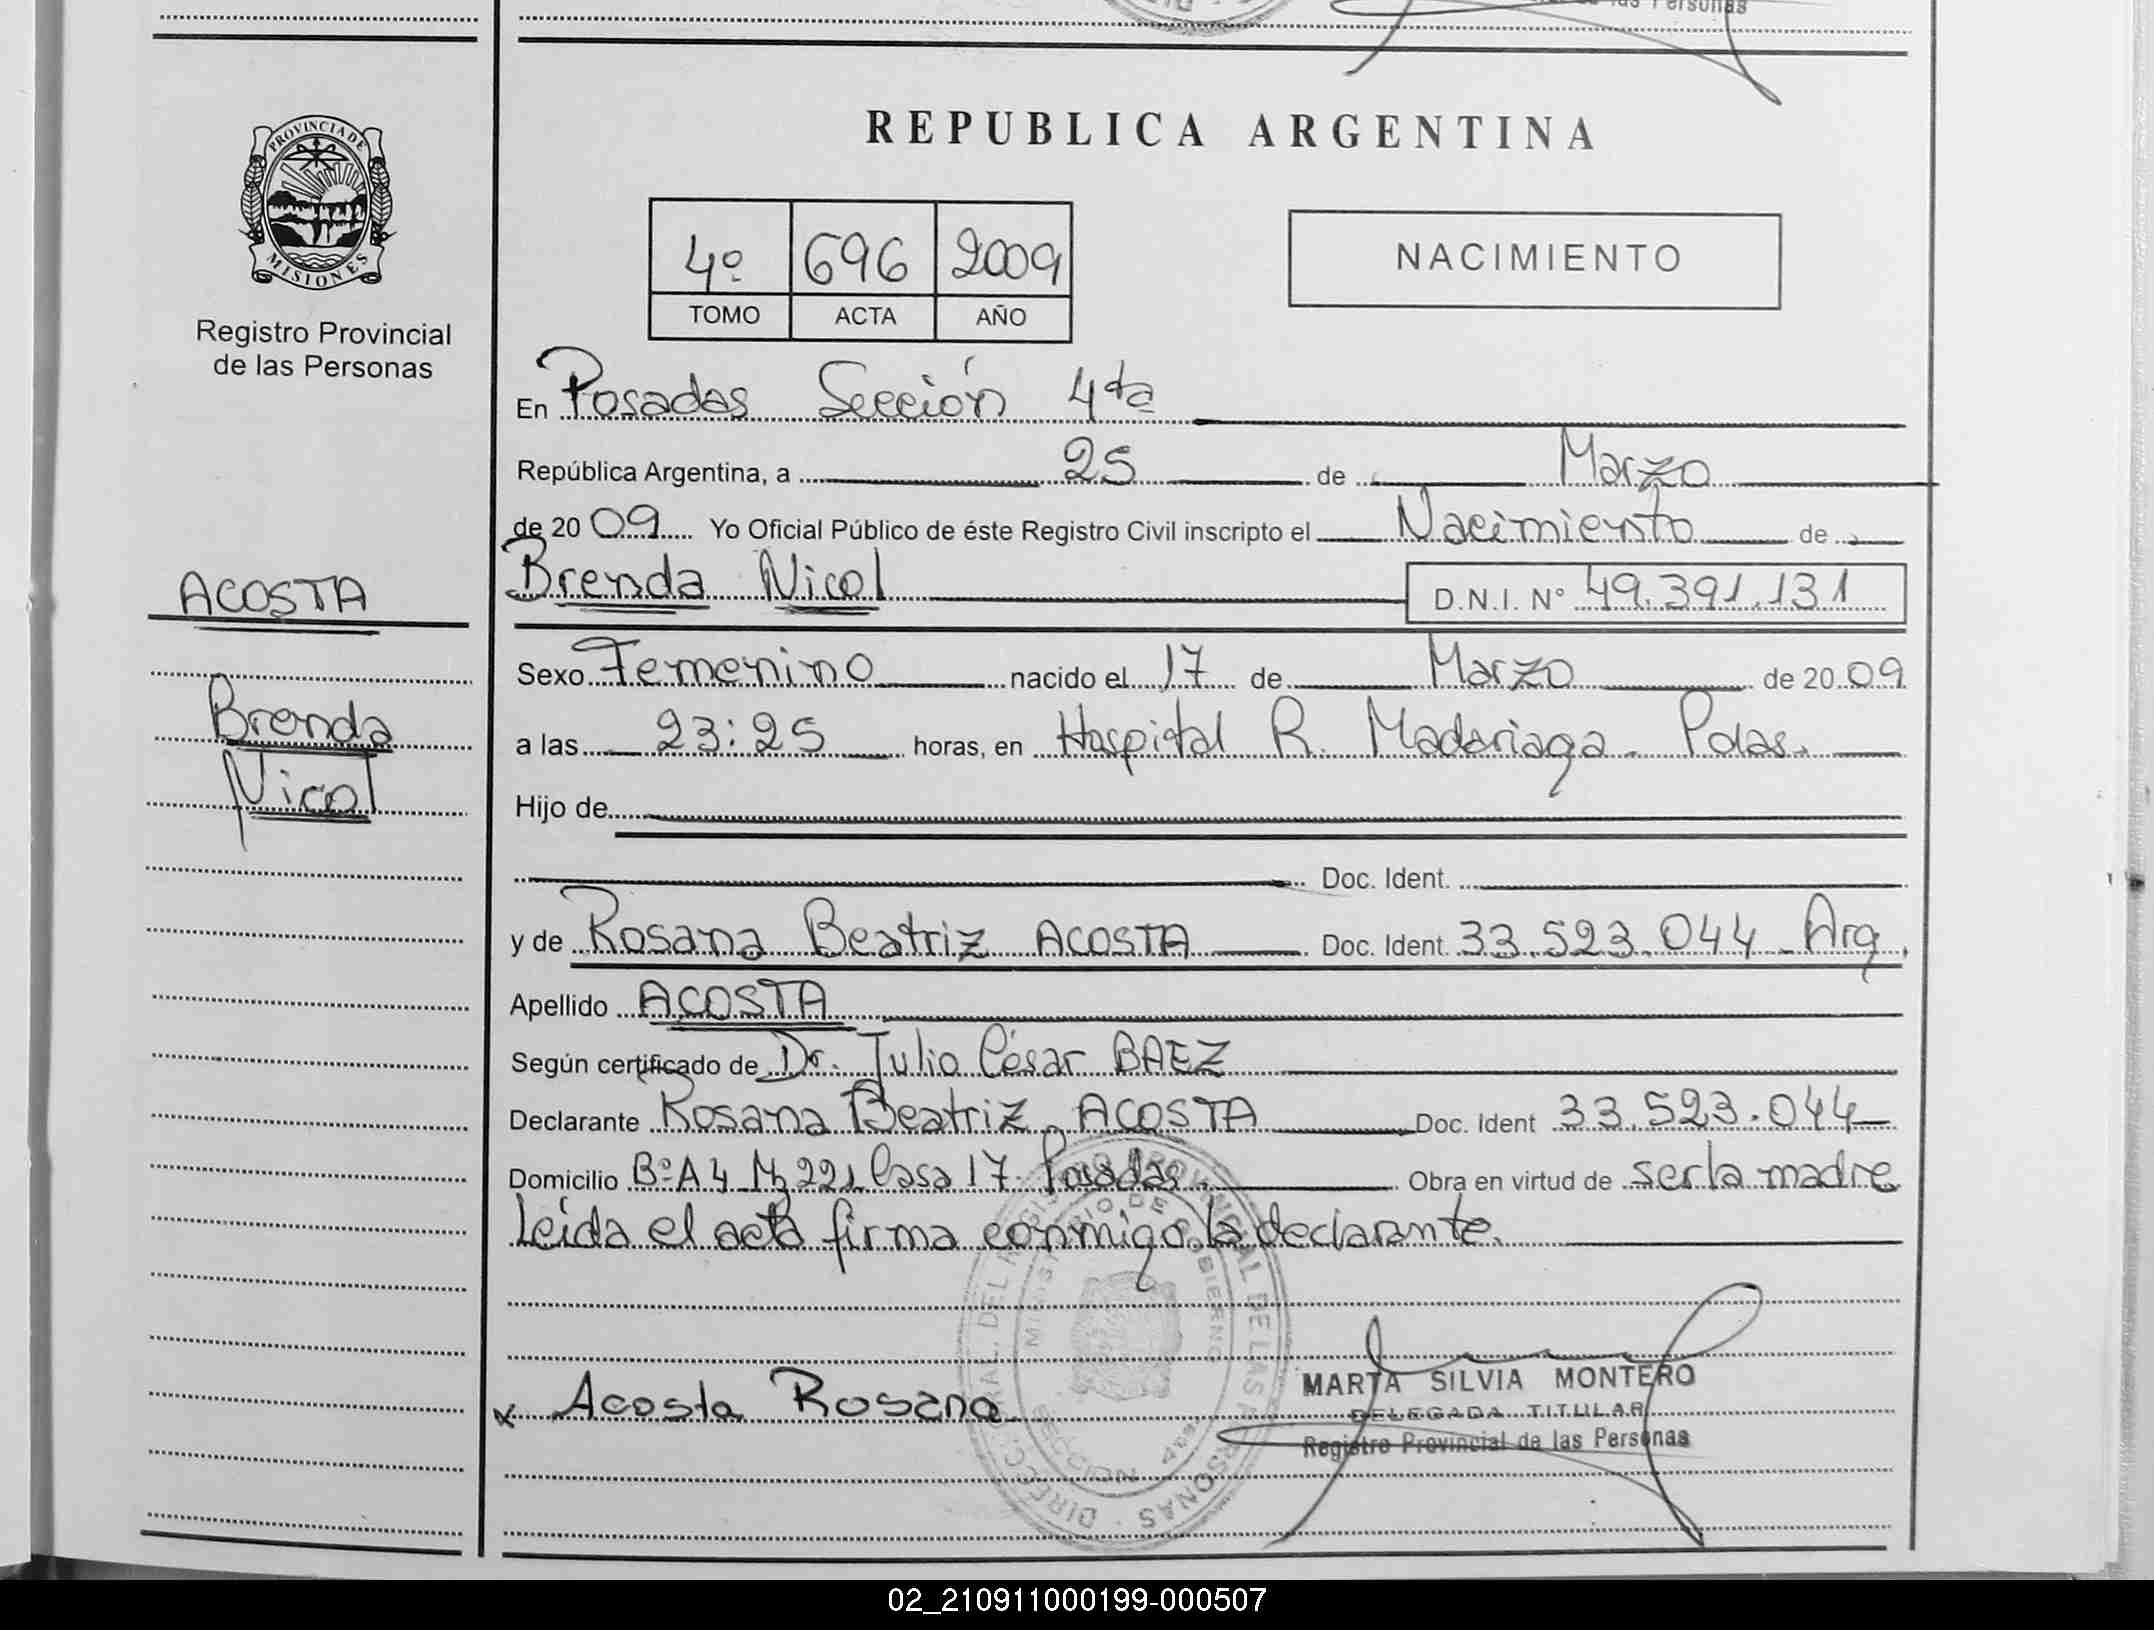 Personas
REPUBLICA ARGENTINA
PROVINCIA DE
MISIONES
Registro Provincial
de las Personas
4º 696 2009
TOMO ACTA AÑO
NACIMIENTO
En Posadas Sección 4ta
República Argentina, a 25 de Marzo
de 20 09 Yo Oficial Público de éste Registro Civil inscripto el Nacimiento de
Brenda Nicol D.N.I. Nº 49.391.131
ACOSTA
Brenda
Nicol
Sexo Femenino nacido el 17 de Marzo de 20 09
a las 23:25 horas, en Hospital R. Madariaga. Pdas.
Hijo de
Doc. Ident.
y de Rosana Beatriz ACOSTA Doc. Ident. 33.523.044 Arg.
Apellido ACOSTA
Según certificado de Dr. Julio César BAEZ
Declarante Rosana Beatriz ACOSTA Doc. Ident 33.523.044
Domicilio Bº A4 Mz 221 Casa 17 Posadas. Obra en virtud de ser la madre
Leída el acta firma conmigo la declarante.
x Acosta Rosana
MARTA SILVIA MONTERO
DELEGADA TITULAR
Registro Provincial de las Personas
02_210911000199-000507